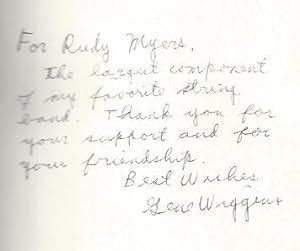 For Rudy Myers,
The largest component
of my favorite string
band. Thank you for
your support and for
your friendship.
Best Wishes
Gene Wiggins